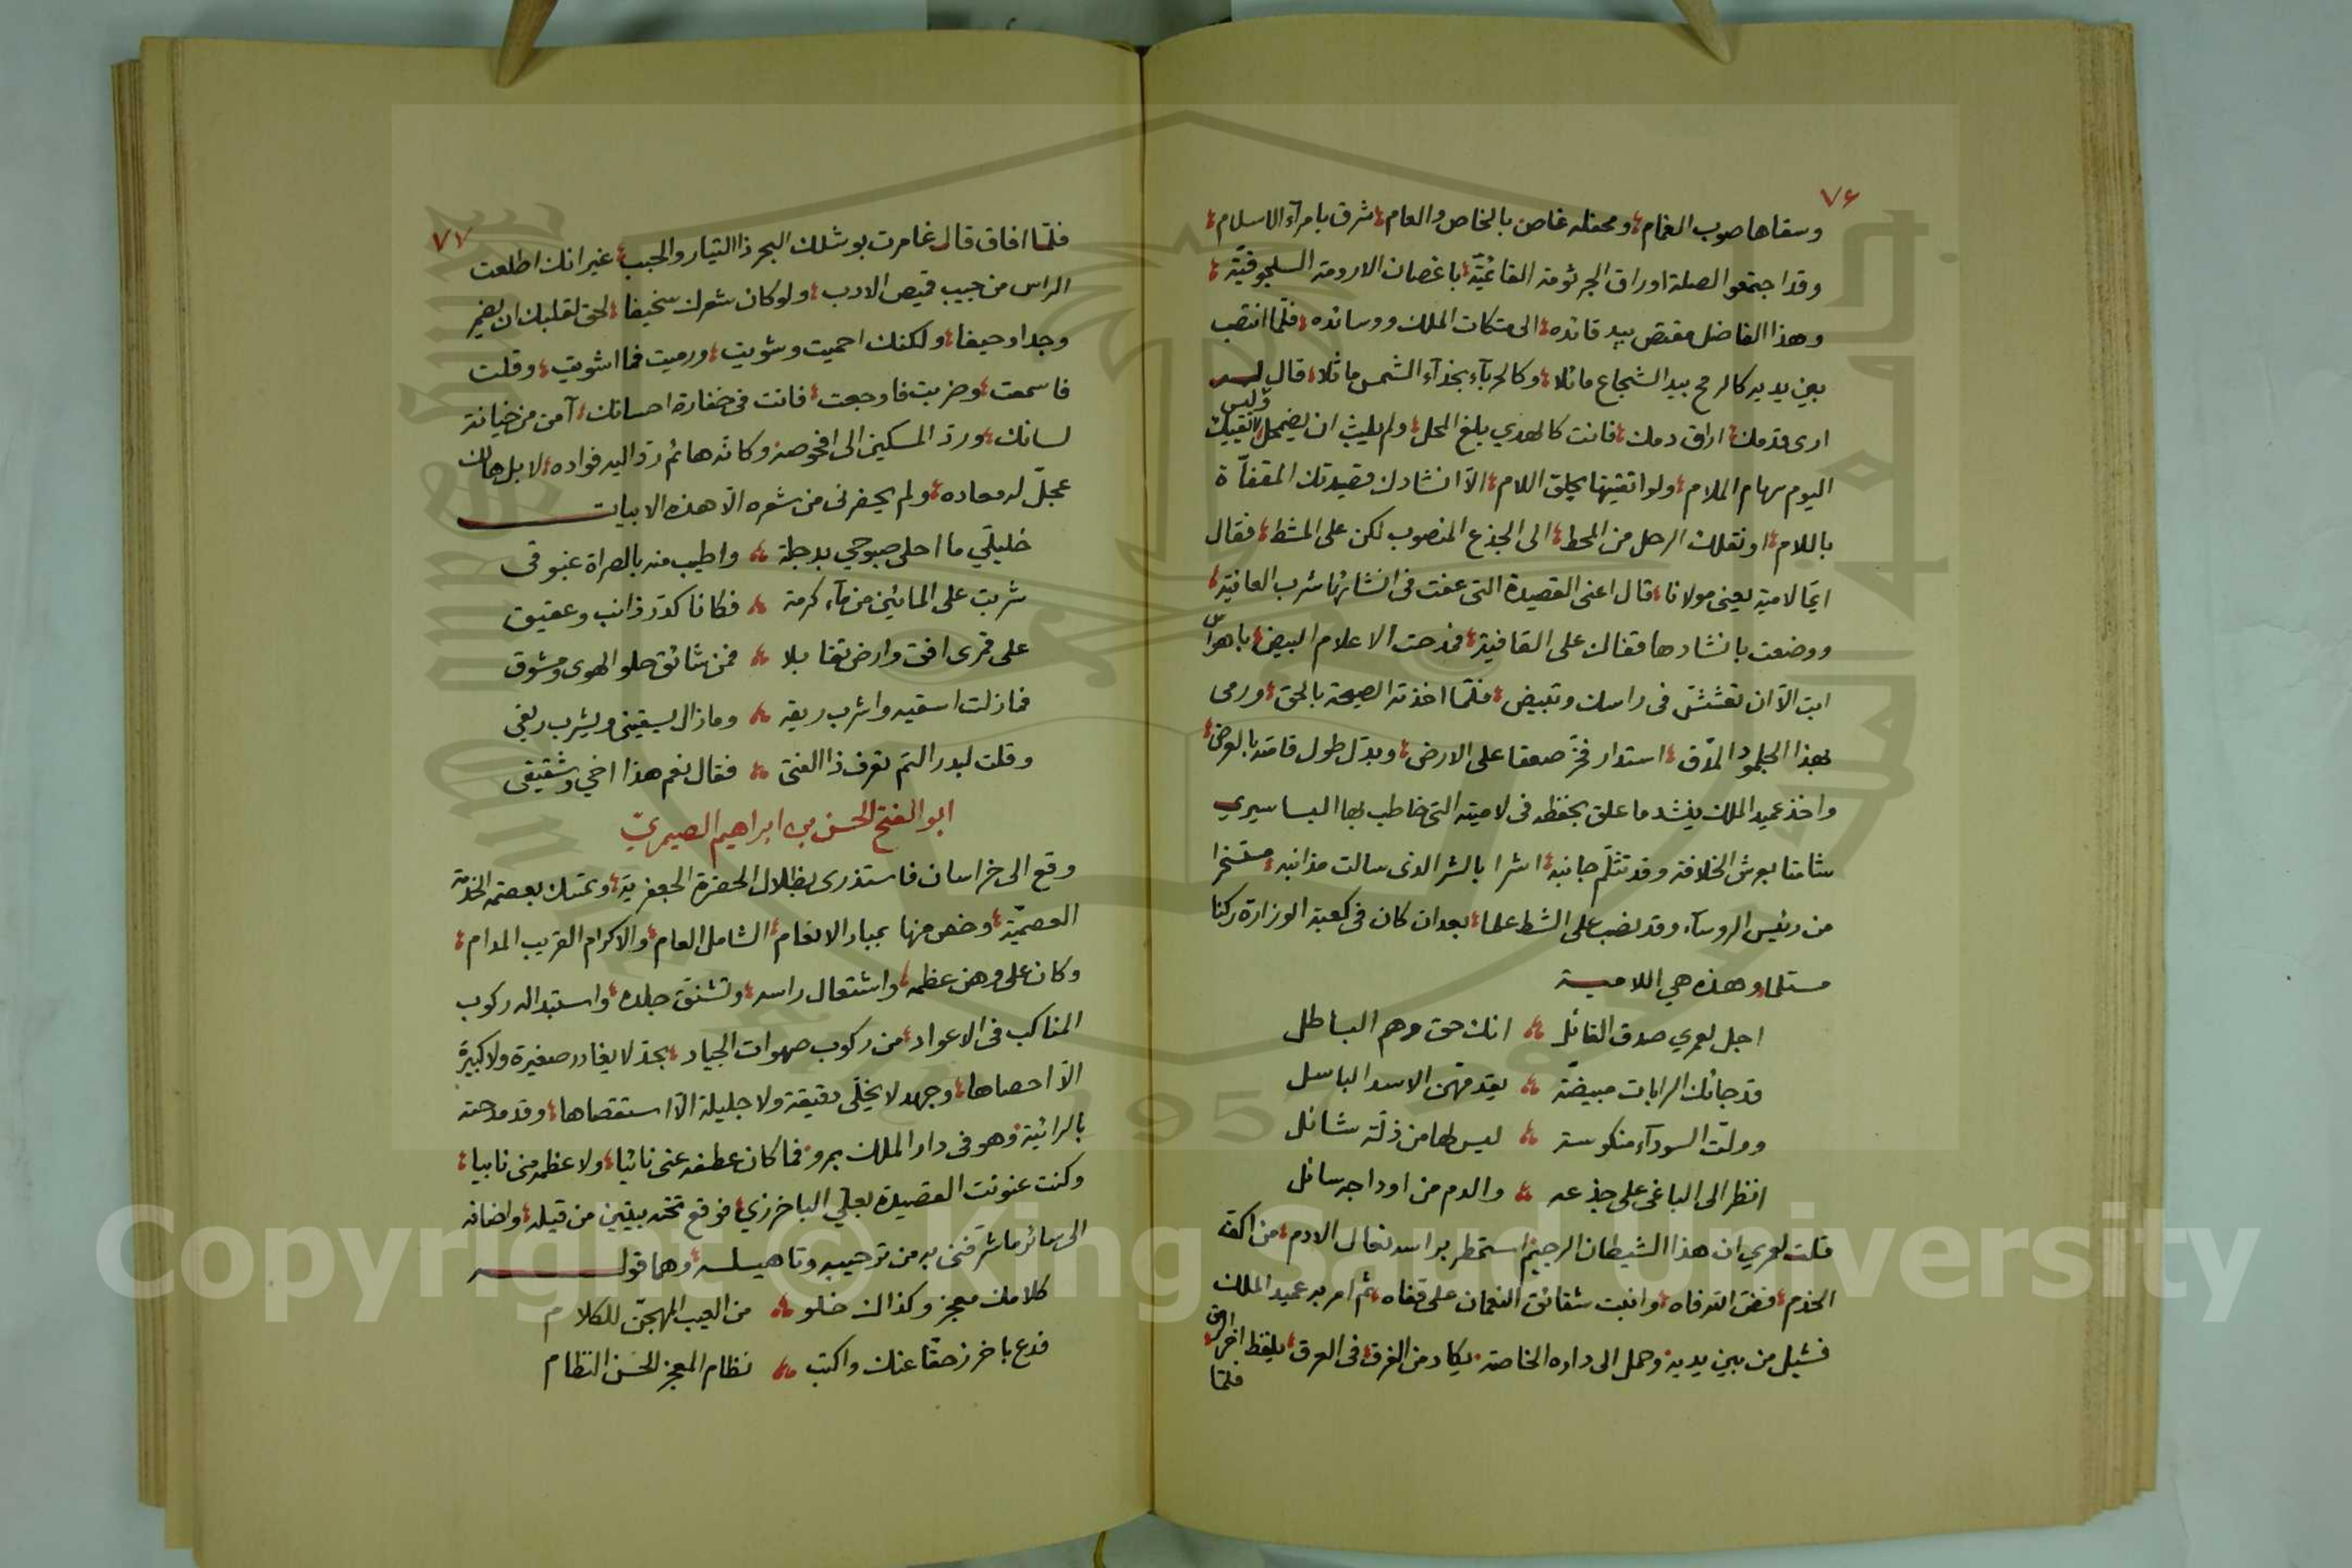 ٧٦
وسقاها صوب الغمام ومحفله غاص بالخاص والعام شرق بامرآء الاسلام
وقد اجتمعوا لصلة اوراق الجرثومة القائميّة باغصان الارومة السلجوقيّة
وهذا الفاضل مقتص بيد قائده الى متكات الملك ووسائده فلمّا انتصب
بين يديه كالرمح بيد الشجاع ماثلا وكالحربآء بخذآء الشمس ماثلا قال له
ارى قدمك اراق دمك فانت كالهدي بلغ المحل ولم يلبث ان يضمحل وليس لا تقيك
اليوم سهام الملام ولو اتقيتها بحلق اللام الّا انشادك قصيدتك المقفّاة
باللام او نقلك الرحل من المحط الى الجذع المنصوب لكن على المشط فقال
ايّما لامية يعنى مولانا قال اعنى القصيدة التى عفت فى انشائها شرب العافية
ووضعت بانشادها قفاك على القافية فمدحت الاعلام البيض باهوآس
ابت الّا ان تعشش فى راسك وتبيض فلمّا اخذته الصيحة بالحق ورمى
بهذا الجلمود المدّق استدار فخرّ صعقا على الارض وبدّل طول قامته بالعرض
واخذ عميد الملك ينشد ما علق بحفظه فى لاميته التى خاطب بها البساسيري
شامتا بعرش الخلافة وقد تثلّم جانبه اشرا بالشر الذى سالت مذانبه متسخرا
من رئيس الروسآء وقد نصب على الشط علما بعد ان كان فى كعبة الوزارة ركنا
مستلما وهذه هي اللامية
اجل لعمري صدق القائل انك حق وهم الباطل
قد جائتك الرايات مبيضّة يقدمهنّ الاسد الباسل
وولّت السودآء منكوسة ليس لها من ذلّة شائل
انظر الى الباغى على جذعه والدم من اوداجه سائل
قلت لعمري ان هذا الشيطان الرجيم استمطر براسه نعال الادم من اكف
الخدم ففض الله فاه وانبت شقائق النعمان على قفاه ثم امر به عميد الملك
فشيل من بين يديه وحمل الى داره الخاصة يكاد من الغرق فى العرق يلفظ اخر الرمق
فلمّا
٧٧
فلمّا افاق قال غامرت بوشلك البحر ذا التيار والحبب غير انك اطلعت
الراس من جيب قميص الادب ولو كان شعرك سخيفا لحق لقلبك ان يضمر
وجدا وحيفا ولكنك احميت وشويت ورميت فما اشويت وقلت
فاسمعت وضربت فاوجعت فانت فى خفارة احسانك آمن من خيانة
لسانك وردّ المسكين الى افحوصه وكانّه هائم ردّ اليه فواده لا بل هالك
عجلّ له معاده ولم يحضرنى من شعره الّا هذه الابيات
خليليّ ما احلى صبوحي بدجلة واطيب منه بالصراة غبوقى
شربت على المائين من مآء كرمة فكانا كدرّ ذائب وعقيق
على قمرى افق وارض تقابلا فمن شائق حلو الهوى ومشوق
فما زلت اسقيه واشرب ريقه وما زال يسقينى ويشرب ريقى
وقلت لبدر التم تعرف ذا الفتى فقال نعم هذا اخي وشقيقى
ابو الفتح الحسن بن ابراهيم الصيمريّ
وقع الى خراسان فاستذرى بظلال الحضرة الجعفريّة وتمسّك بعصمة الخدمة
العصميّة وخص منها بمبار الانعام الشامل العام والاكرام القريب المدام
وكان على وهن عظمه واشتعال راسه وتشنّق جلده واستبداله ركوب
المناكب فى الاعواد من ركوب صهوات الجياد بجدّ لا يغادر صغيرة ولا كبيرة
الّا احصاها وجهد لا يخلّى دقيقة ولا جليلة الّا استقصاها وقد مدحته
بالرائيّة وهو فى دار الملك بمرو فما كان عطفه عنى نائيا ولا عظمه منى نابيا
وكنت عنونت القصيدة بعليّ الباخرزي فوقع تحته بيتين من قيله واضافه
الى سائر ما شرّفنى به من ترحيبه وتاهيله وهما قوله
كلامك معجز وكذاك خلو من العيب المهجّن للكلام
فدع باخرز حقّا عنك واكتب نظام المعجز الحسن النظام